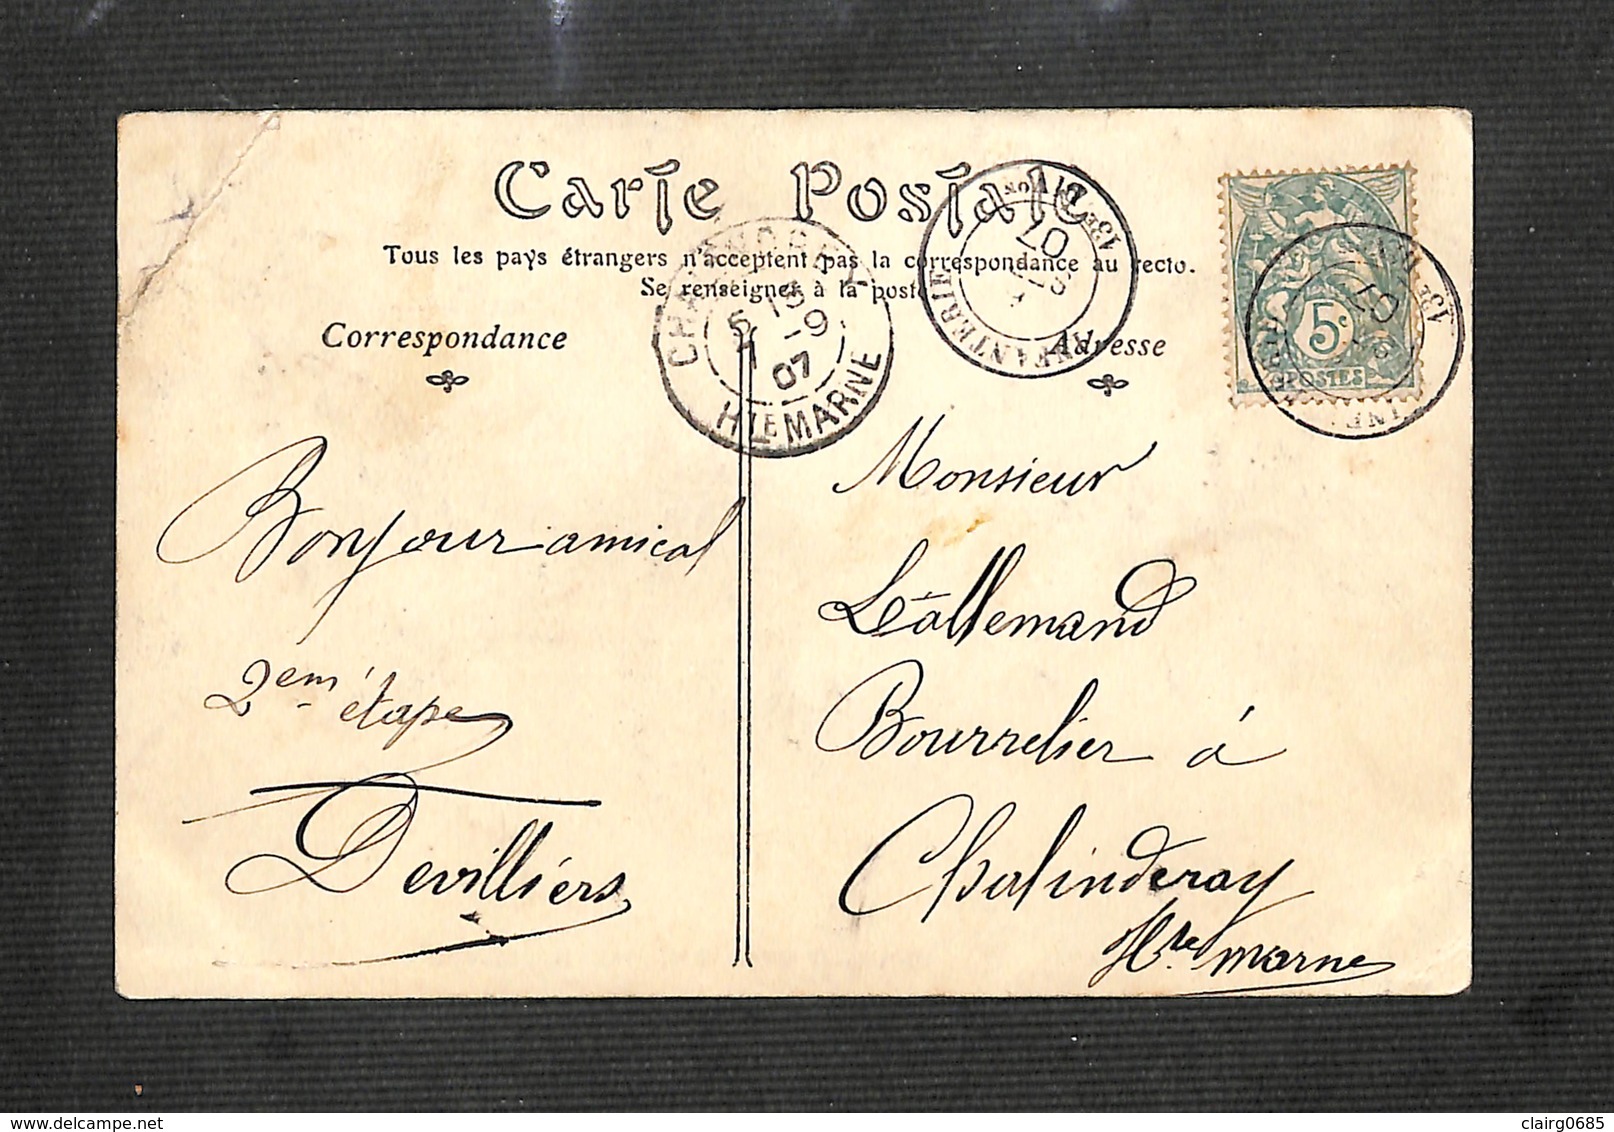 Carte Postale
Tous les pays étrangers n'acceptent pas la correspondance au recto.
Se renseigner à la poste
Correspondance
Adresse
CHALINDREY
5 15
7 -9
07
HTE MARNE
13E DIVISION
07
INFANTERIE
5c
POSTES
Bonjour amical
2em étape
Devilliérs
Monsieur
Lallemand
Bourrelier à
Chalinderay
Hte marne
delcampe.net
clairg0685